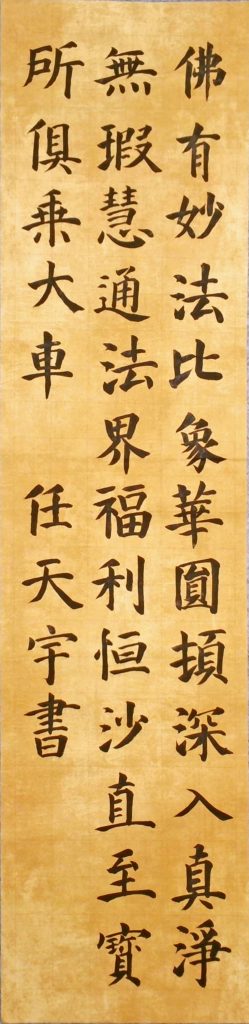 佛有妙法比象華圓頓深入真淨
無瑕慧通法界福利恒沙直至寶
所俱乘大車 任天宇書